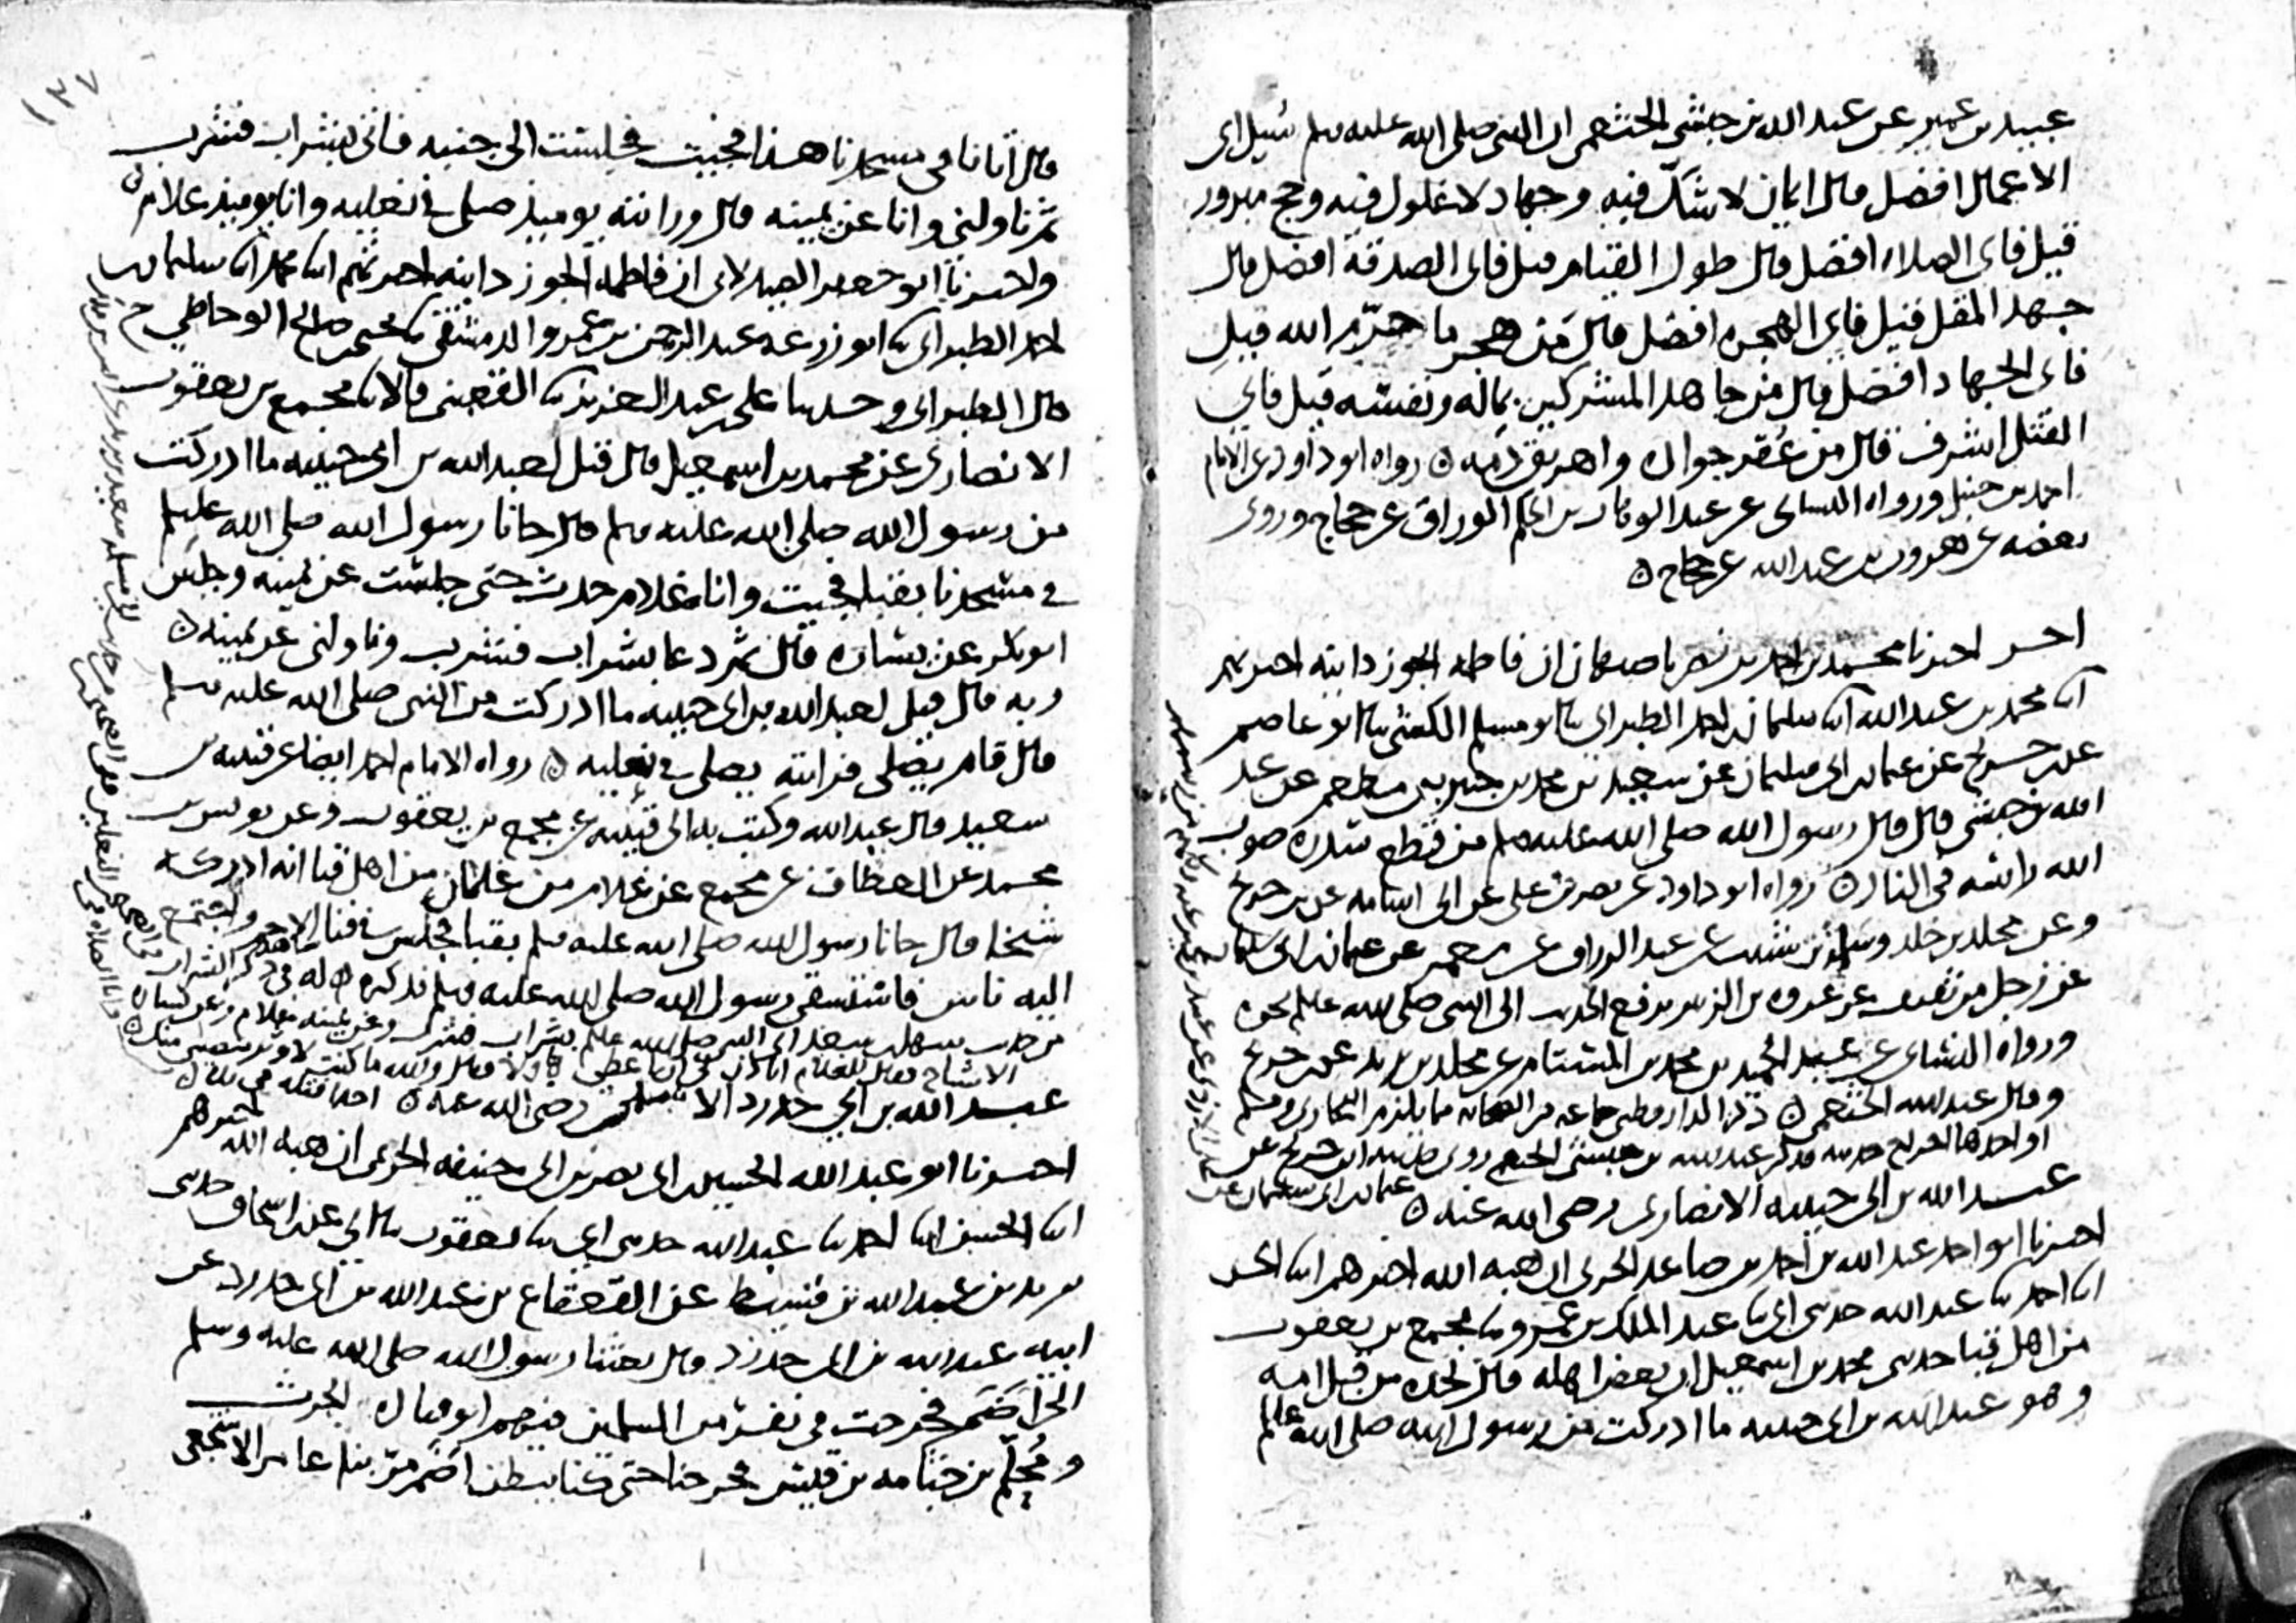 عبيد بن عمير عن عبد الله بن حبشي الخثعمي ان النبي صلى الله عليه وسلم سُئل اي
الاعمال افضل قال ايمان لا شكّ فيه وجهاد لا غلول فيه وحج مبرور
قيل فاي الصلاة افضل قال طول القيام قيل فاي الصدقة افضل قال
جهد المقل قيل فاي الهجرة افضل قال مَن هجر ما حرّم الله قيل
فاي الجهاد افضل قال من جاهد المشركين بماله ونفسه قيل فاي
القتل اشرف قال من عُقر جواده واهريق دمه ه رواه ابو داود عن الامام
احمد بن حنبل ورواه النسائي عن عبد الوهاب بن الحكم الوراق عن حجاج وروى
بعضه عن هرون بن عبد الله عن حجاج ه
اخر اخبرنا محمد بن احمد بن نصر باصبهان ان فاطمة الجوزدانية اخبرتهم
ابنا محمد بن عبد الله ابنا سليمان بن احمد الطبراني ثنا ابو مسلم الكشي ثنا ابو عاصم
عن ابن جريج عن عثمان بن ابي سليمان عن سعيد بن محمد بن جبير بن مطعم عن عبد
الله بن حبشي قال قال رسول الله صلى الله عليه وسلم من قطع سدرة صوب
الله راسه في النار ه رواه ابو داود عن نصر بن علي عن ابي اسامة عن ابن جريج
وعن مخلد بن خالد وسلمة بن شبيب عن عبد الرزاق عن معمر عن عثمان بن ابي سليمان
عن رجل من ثقيف عن عروة بن الزبير يرفع الحديث الى النبي صلى الله عليه وسلم نحوه
ورواه النسائي عن عبد الحميد بن محمد بن المستام عن مخلد بن يزيد عن ابن جريج
وقال عبد الله الخثعمي ه ذكر الدارقطني جماعة من الصحابة مما يلزم البخاري ومسلم
او احدهما اخراج حديثه فذكر عبد الله بن حبشي الخثعمي روى حديثه ابن جريج عن
عثمان بن ابي سليمان عن
عبد الله بن ابي حبيبة الانصاري رضي الله عنه ه
اخبرنا ابو احمد عبد الله بن احمد بن صاعد الحربي ان هبة الله اخبرهم ابنا الحسن
ابنا احمد ثنا عبد الله حدثني ابي ثنا عبد الملك بن عمرو ثنا مجمع بن يعقوب
من اهل قبا حدثني محمد بن اسمعيل ان بعض اهله قال لجده من قبل امه
وهو عبد الله بن ابي حبيبة ما ادركت من رسول الله صلى الله عليه وسلم
١٣٧
قال اتانا في مسجدنا هذا فجيت فجلست الى جنبه فاتي بشراب فشرب
ثم ناولني وانا عن يمينه قال ورايته يوميذ صلى في نعليه وانا يوميذ غلام ه
واخبرنا ابو جعفر الصيدلاني ان فاطمة الجوزدانية اخبرتهم ابنا محمد ابنا سليمان بن
احمد الطبراني ثنا ابو زرعة عبد الرحمن بن عمرو الدمشقي ثنا يحيى بن صالح الوحاظي ح
قال الطبراني وحدثنا علي بن عبد العزيز ثنا القعنبي قالا ثنا مجمع بن يعقوب
الانصاري عن محمد بن اسمعيل قال قيل لعبد الله بن ابي حبيبة ما ادركت
من رسول الله صلى الله عليه وسلم قال جانا رسول الله صلى الله عليه وسلم
في مسجدنا بقبا فجيت وانا غلام حدث حتى جلست عن يمينه وجلس
ابو بكر عن يساره قال ثم دعا بشراب فشرب وناولني عن يمينه ه
وبه قال قيل لعبد الله بن ابي حبيبة ما ادركت من النبي صلى الله عليه وسلم
قال قام يصلي فرايته يصلي في نعليه ه رواه الامام احمد ايضا عن قتيبة بن
سعيد قال عبد الله وكتب به الي قتيبة عن مجمع بن يعقوب وعن يونس بن
محمد عن العطاف عن مجمع عن غلام من غلمان من اهل قبا انه ادركه
شيخا قال جانا رسول الله صلى الله عليه وسلم بقبا فجلس في فنا الاجم واجتمع
اليه ناس فاستسقى رسول الله صلى الله عليه وسلم فذكره ه له شاهد في ذكر الشراب في الصحيحين
من حديث سهل بن سعد اتي النبي صلى الله عليه وسلم بشراب فشرب وعن يمينه غلام وعن يساره
الاشياخ فقال للغلام اتاذن لي ان اعطي هاولا فقال والله ما كنت لاوثر بنصيبي منك احدا فتله في يده ه
عبد الله بن ابي حدرد الاسلمي رضي الله عنه ه
اخبرنا ابو عبد الله الحسين بن ابي نصر بن ابي حنيفة الحربي ان هبة الله اخبرهم
ابنا الحسن ابنا احمد ثنا عبد الله حدثني ابي ثنا يعقوب ثنا ابي عن ابن اسحاق حدثني
يزيد بن عبد الله بن قسيط عن القعقاع بن عبد الله بن ابي حدرد عن
ابيه عبد الله بن ابي حدرد قال بعثنا رسول الله صلى الله عليه وسلم
الى اِضَم فخرجت في نفر من المسلمين فيهم ابو قتادة الحرث
ومُحَلِّم بن جثامة بن قيس فخرجنا حتى كنا ببطن اضم مر بنا عامر الاشجعي